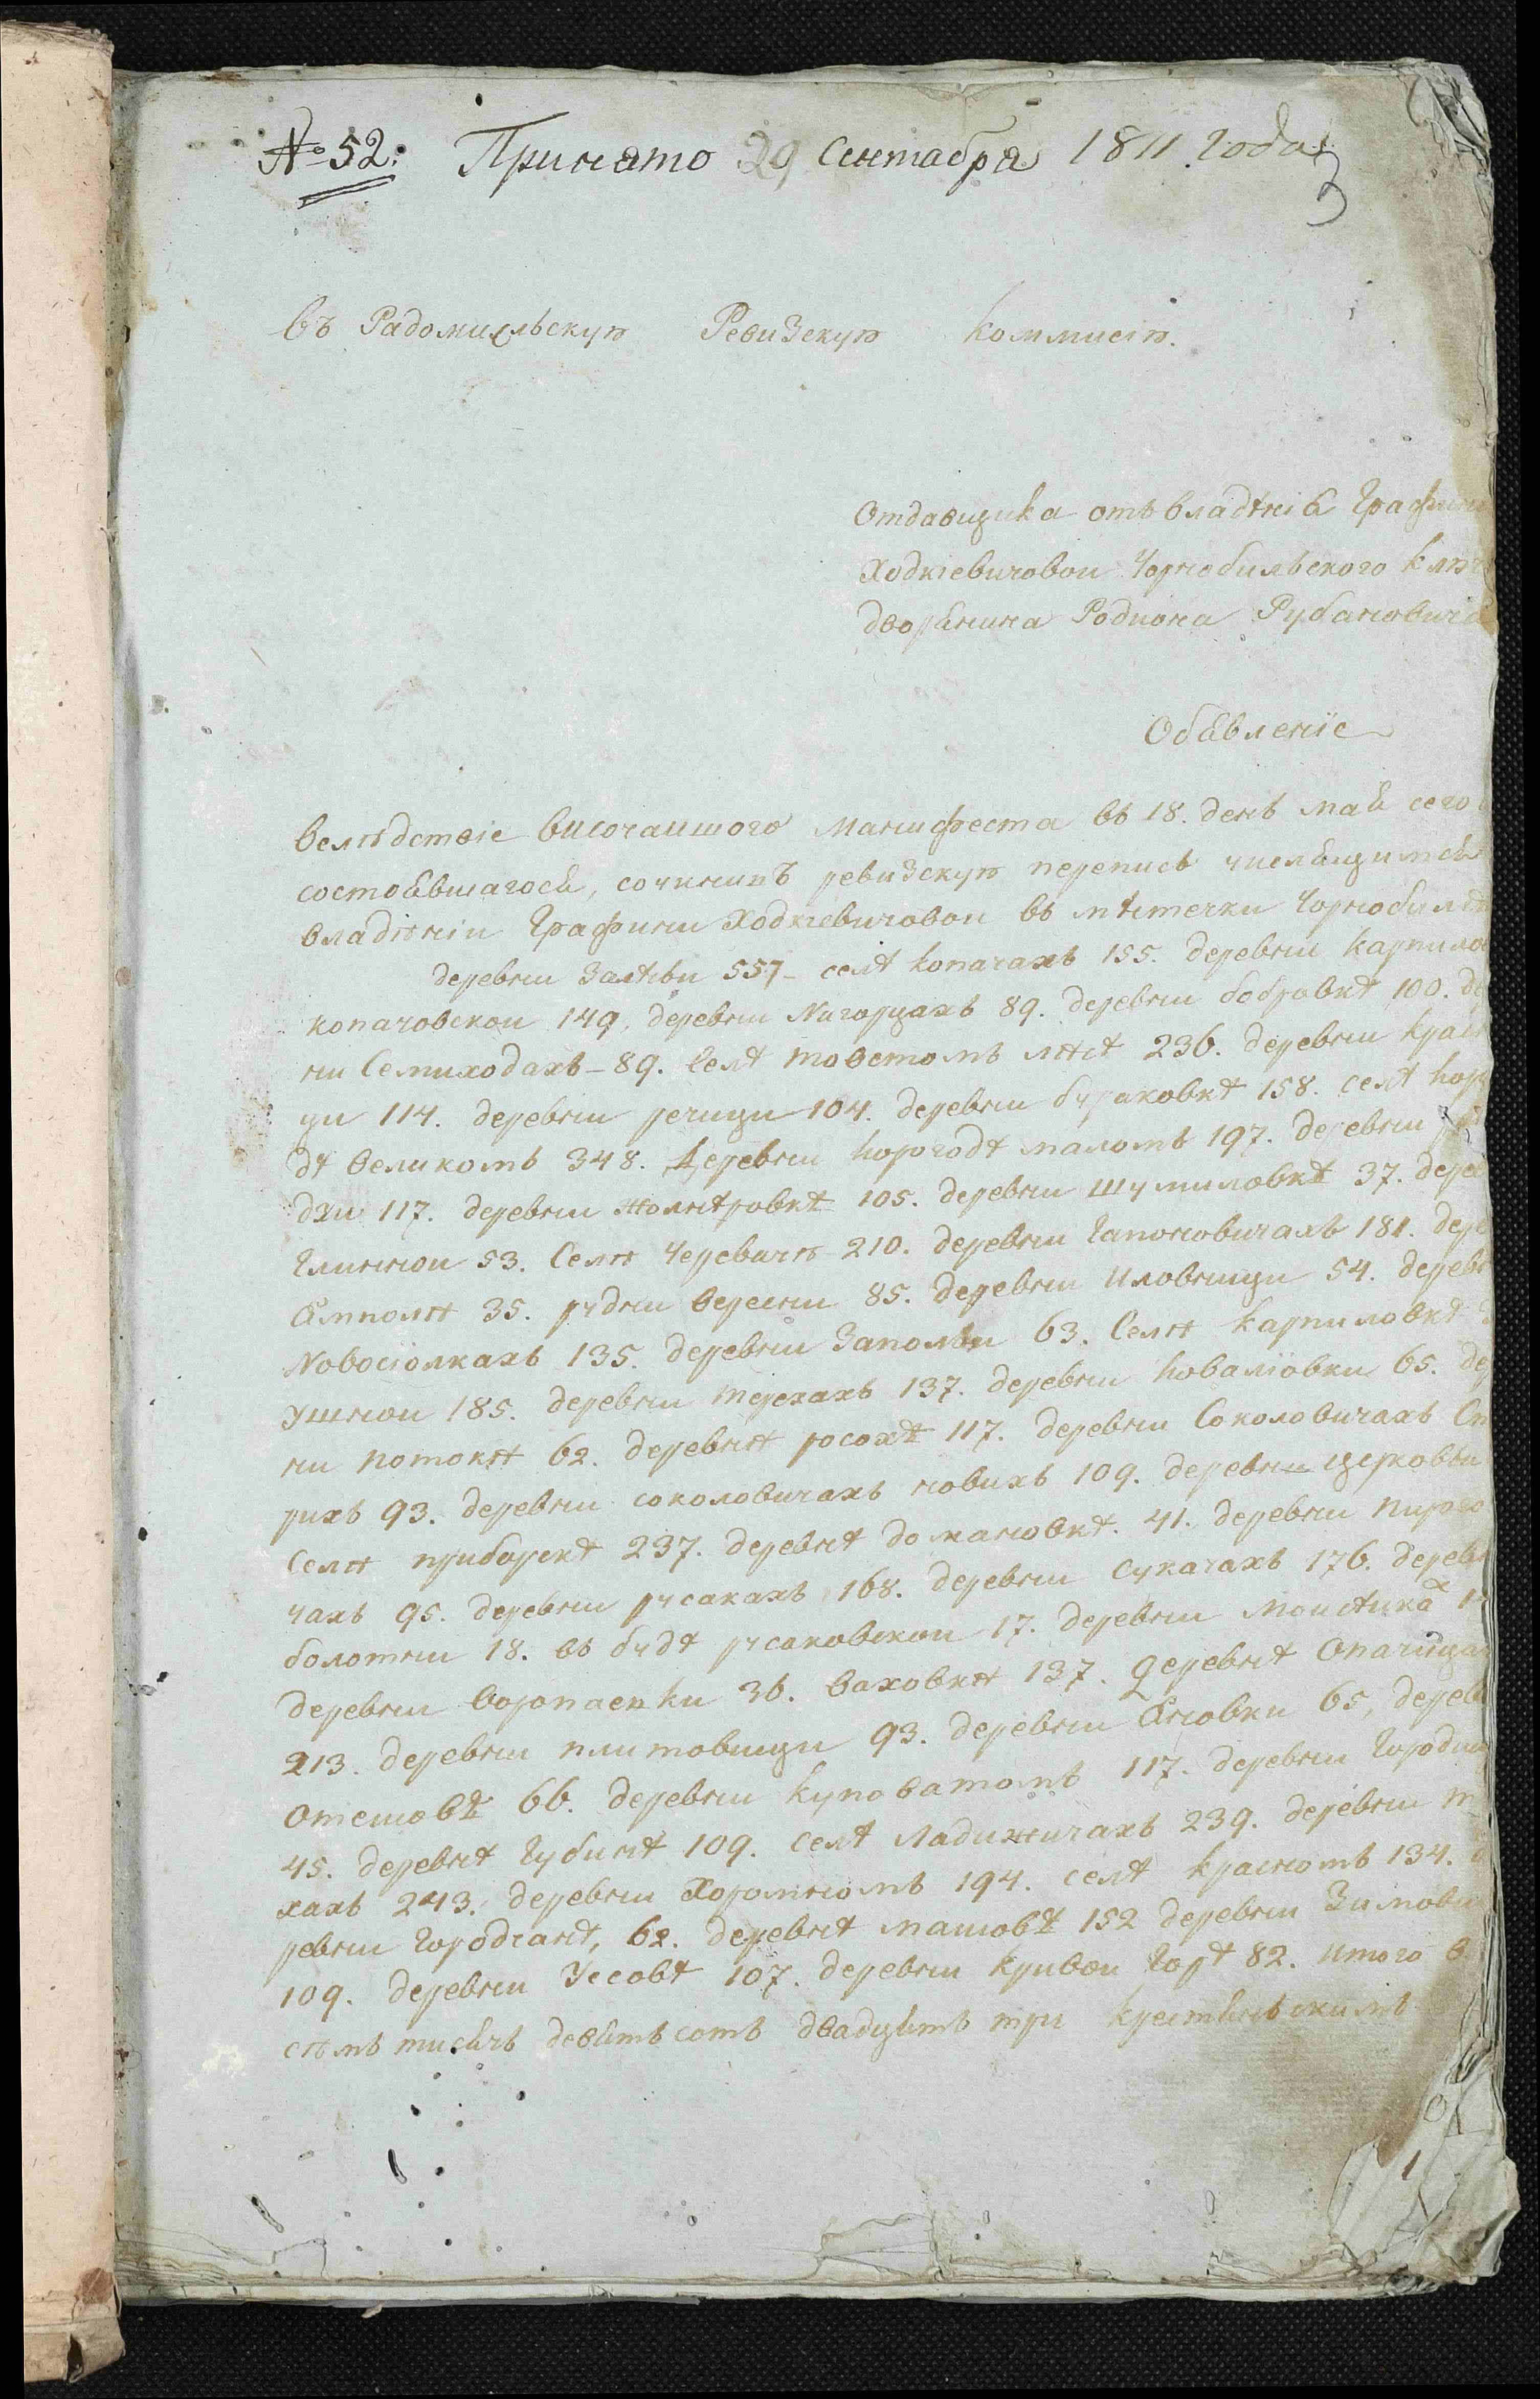 № 52: Принято 29 Сентабра 1811. года
Въ Радомисльскую Ревизскую Коммисію.
Отдавщика отъ владѣнія Графини
Ходкіевичовои Чорнобильского Клю
дворянина Родиона Рубановича
Обявленіе
Велѣдствіе височаишого Манифеста въ 18. день мая сего
состоявшагося, сочинивъ ревизскую перепись числящимся
владѣніи Графини Ходкіевичовои въ мѣстечки Чорнобилѣ
деревни Залѣви 557 - селѣ Копачахъ 155. деревни карпилов
копачовскои 149, деревни Нагорцахъ 89. деревни бобровкѣ 100. де
ни Семиходахъ - 89. Селѣ товстомъ лѣсѣ 236. деревни Красн
ци 114. деревни речици 104. деревни бураковкѣ 158. селѣ Кор
дѣ великомъ 348. Деревни Корогодѣ маломъ 197. деревни
дки 117. деревни 105. деревни Шумиловкѣ 37. дерев
Глиннои 53. Селѣ Черевачѣ 210. деревни Гапоновичахъ 181. дере
Ямполѣ 35. рудни вересни 85. деревни Иловници 54. дерев
Новосіолкахъ 135. деревни Заполви 63. Селѣ карпиловкѣ
ушнои 185. деревни терехахъ 137. деревни Коваліовки 65. де
ни потокѣ 62. деревнѣ росохѣ 117. деревни Соколовичахъ Ст
рихъ 93. деревни соколовичахъ новихъ 109. деревни церковни
Селѣ приборскѣ 237. деревнѣ домановкѣ. 41. деревни пирого
чахъ 95. деревни русакахъ 168. деревни Сукачахъ 176. деревн
болотни 18. въ будѣ русаковскои 17. деревни
деревни Воропаевки 36. Ваховкѣ 137. Деревнѣ Опачицах
213. деревни плитовищи 93. деревни Яновки 65, дерев
Оташовѣ 66. деревни куповатомъ 117. деревни Городищ
45. деревнѣ Губинѣ 109. селѣ Ладижичахъ 239. деревни
хахъ 243. деревни Хоромномъ 194. селѣ красномъ 134.
ревни Городчанѣ, 62. деревнѣ машовѣ 152 деревни Зимови
109. деревни Усовѣ 107. деревни кривои Горѣ 82. итого в
сѣмъ тисячъ девятъ сотъ двадцять три крестянскимъ
1